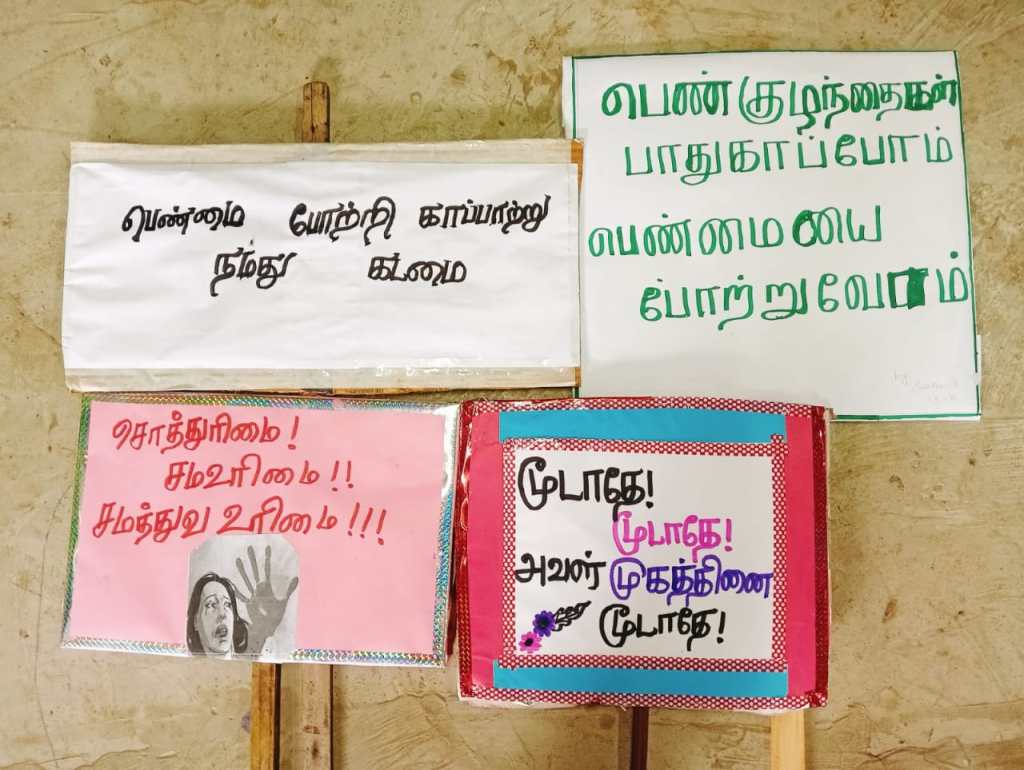 பெண்மை போற்றி காப்பாற்று
நம்து கடமை
பெண்குழந்தைகள்
பாதுகாப்போம்
பெண்மையை
போற்றுவோம்
சொத்துரிமை!
சமஉரிமை!!
சமத்துவ உரிமை!!!
மூடாதே!
மூடாதே!
அவள் முகத்தினை
மூடாதே!
by